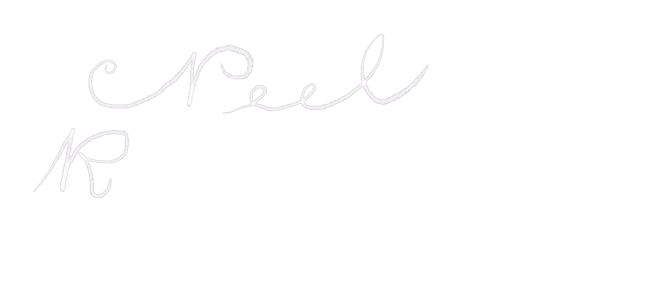 Peel
R